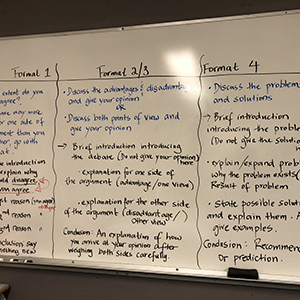 Format 1
extent do you
agree?
may
one side of
than you
, go with
introduction
explain why
disagree.
reason
reason
"
conclusion say
new
Format 2/3
• Discuss the advantages & disadvanta
and give your opinion
OR
• Discuss both points of view and
give your opinion
→ Brief introduction introducing
the debate (Do not give your opinion)
here
• explanation for one side
of the argument (advantage / one view)
• explanation for the other side
of the argument (disadvantage /
other view)
Conclusion: An explanation of how
you arrive at your opinion after
weighing both sides carefully.
Format 4
• Discuss the problem
and solutions
→ Brief introduction
introducing the proble
(Do not give the solution
• explain / expand prob
why the problem exists
Result of problem
• State possible solution
and explain them.
give examples.
Conclusion: Recommen
or prediction.